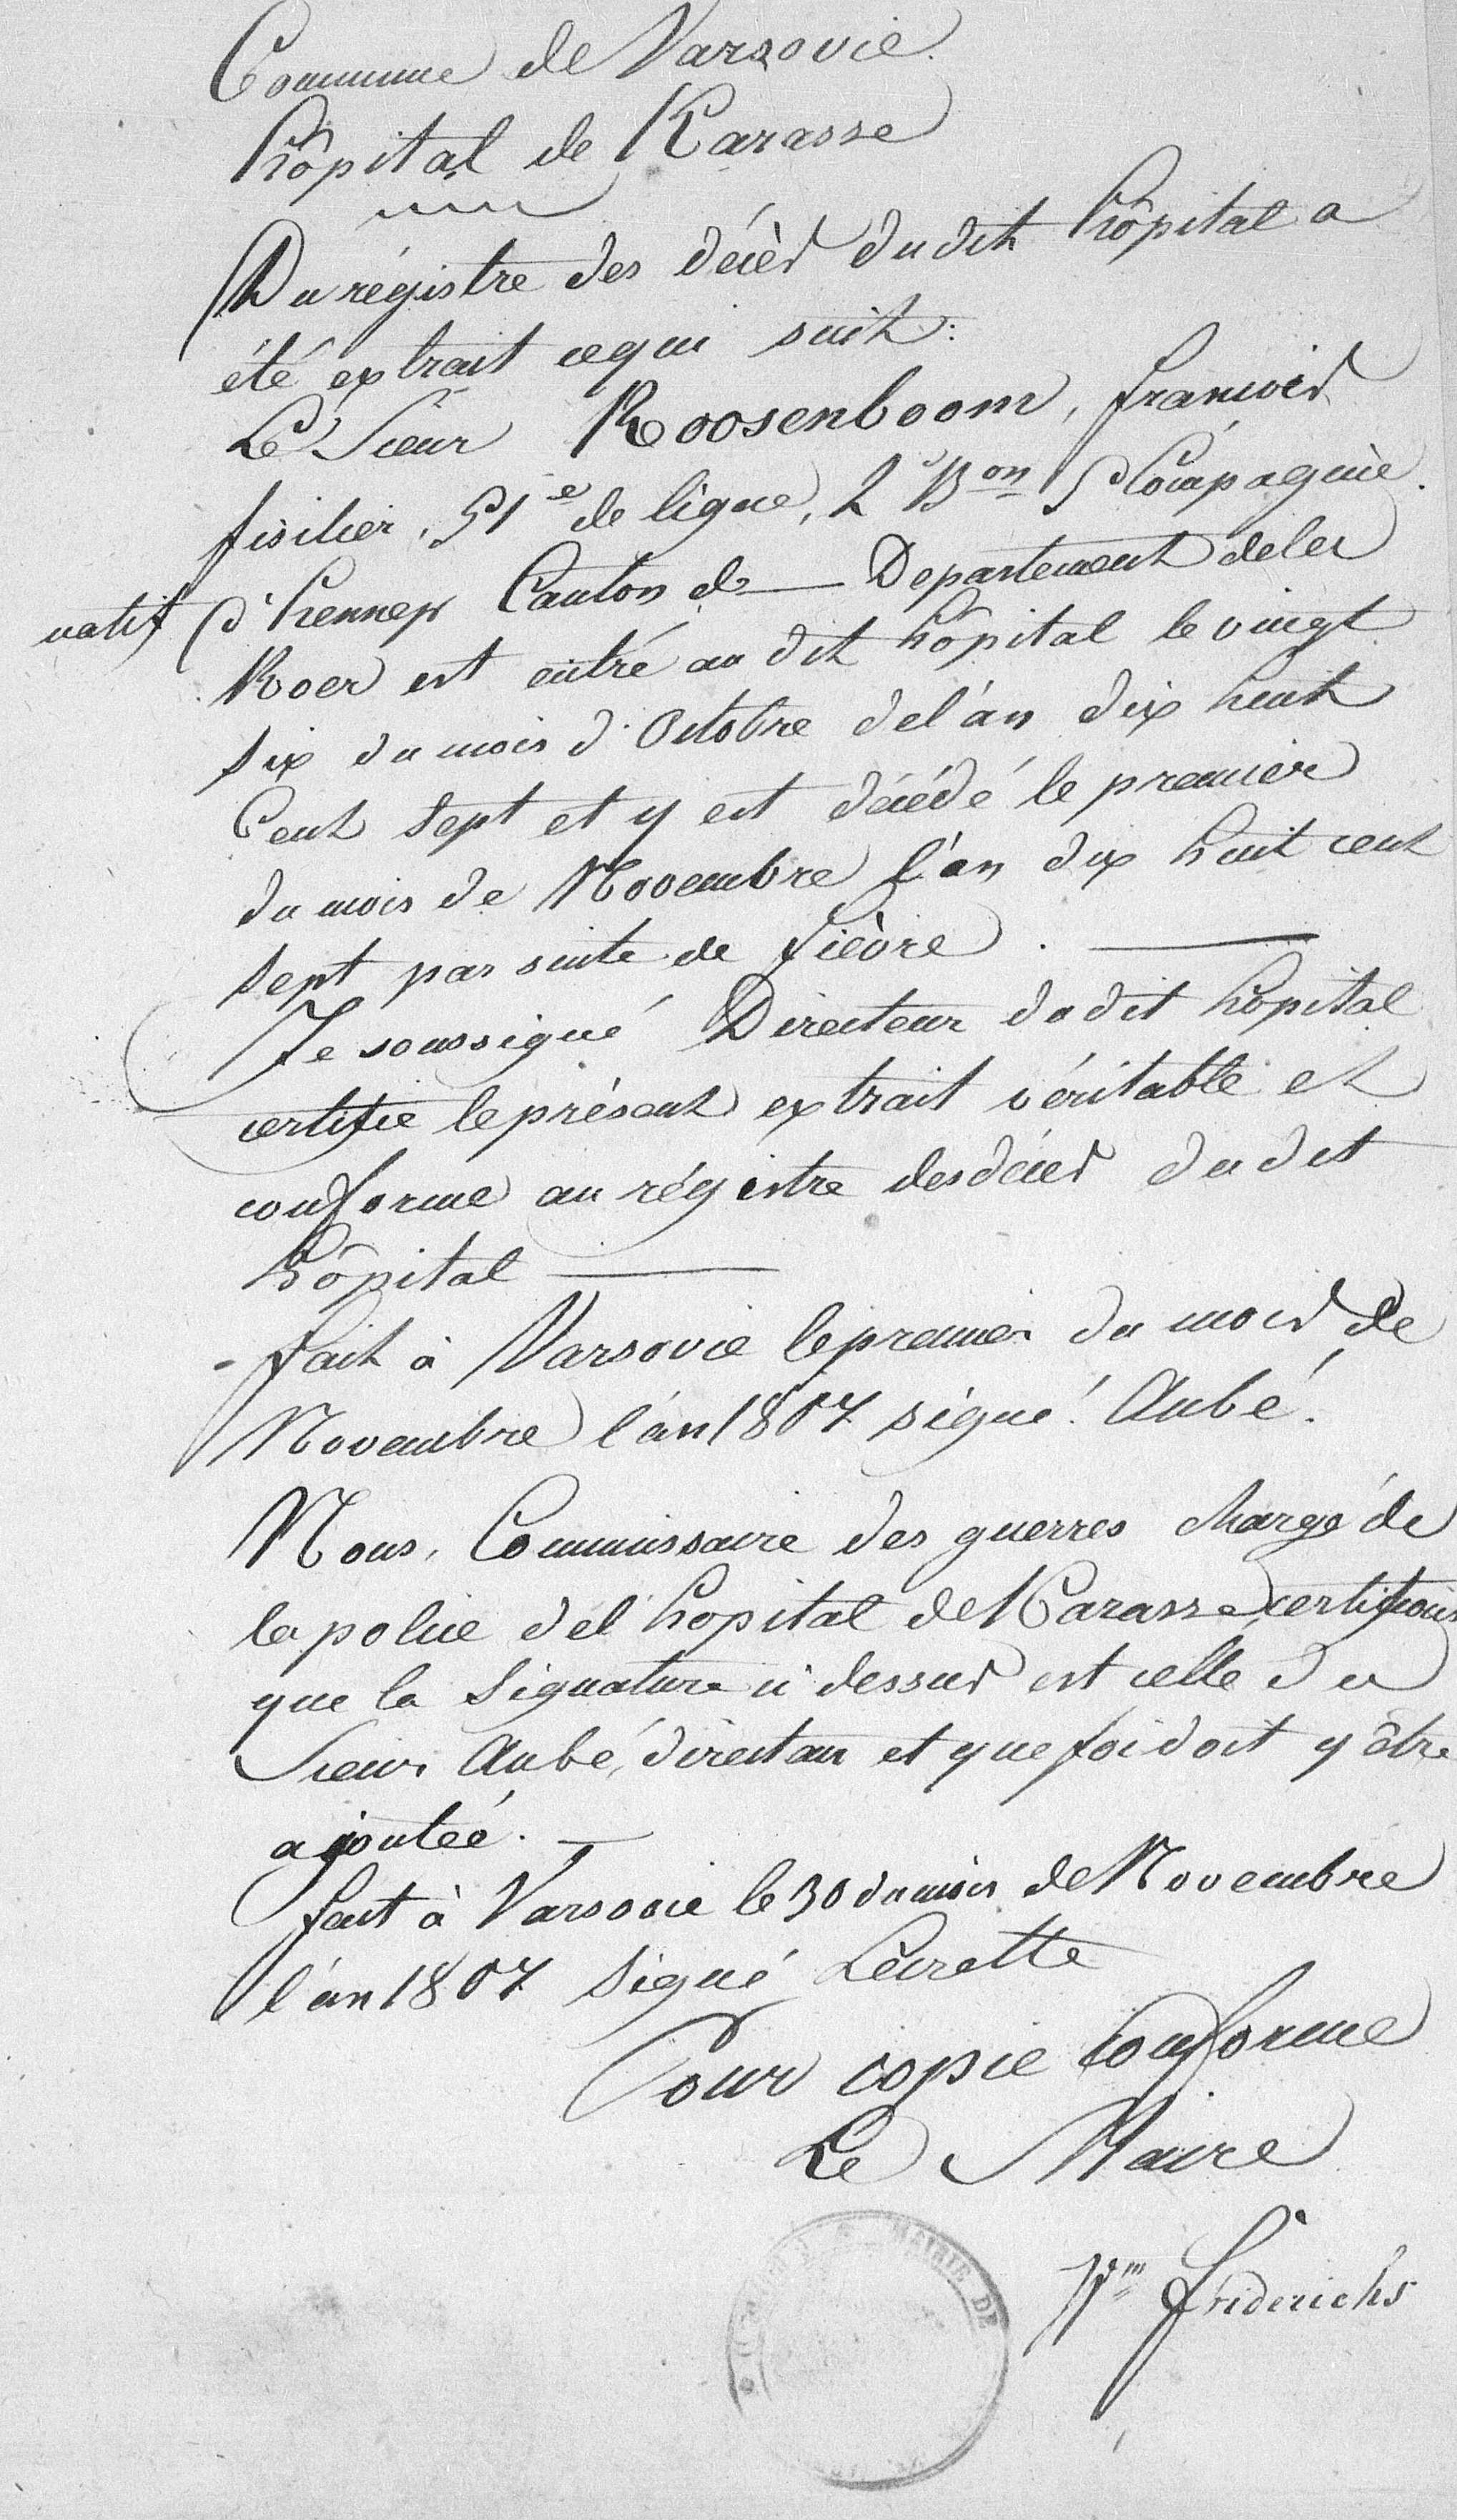 Commune de Varsovie.
hôpital de Karasse
Du régistre des décès du dit hôpital a
été extrait cequi suit:
Le Sieur Roosenboom, francois
fisilier, 51e de ligne, 2e Bon 5e Compagnie.
natif d'hennep Canton d— Departement de la
Roer est entré au dit hôpital le vingt
six du mois d'Octobre de l'an dix huit
Cent Sept et y est décédé le premier
du mois de Novembre l'an dix huit cent
Sept par suite de fièvre.
Je soussigné Directeur dudit hôpital
certifie le présent extrait véritable et
conforme au régistre des décès du dit
hôpital
fait à Varsovie le premier du mois de
Novembre l'an 1807 signé Aubé.
Nous, Commissaire des guerres chargé de
la police de l'hopital de Karasse, certifions
que la Signature ci dessus est celle du
Sieur Aubé, directeur et que foi doit y être
ajoutée.
fait à Varsovie le 30 du mois de Novembre
l'an 1807 Signé
Pour copie conforme
Le Maire
Wm Friderichs
MAIRIE DE